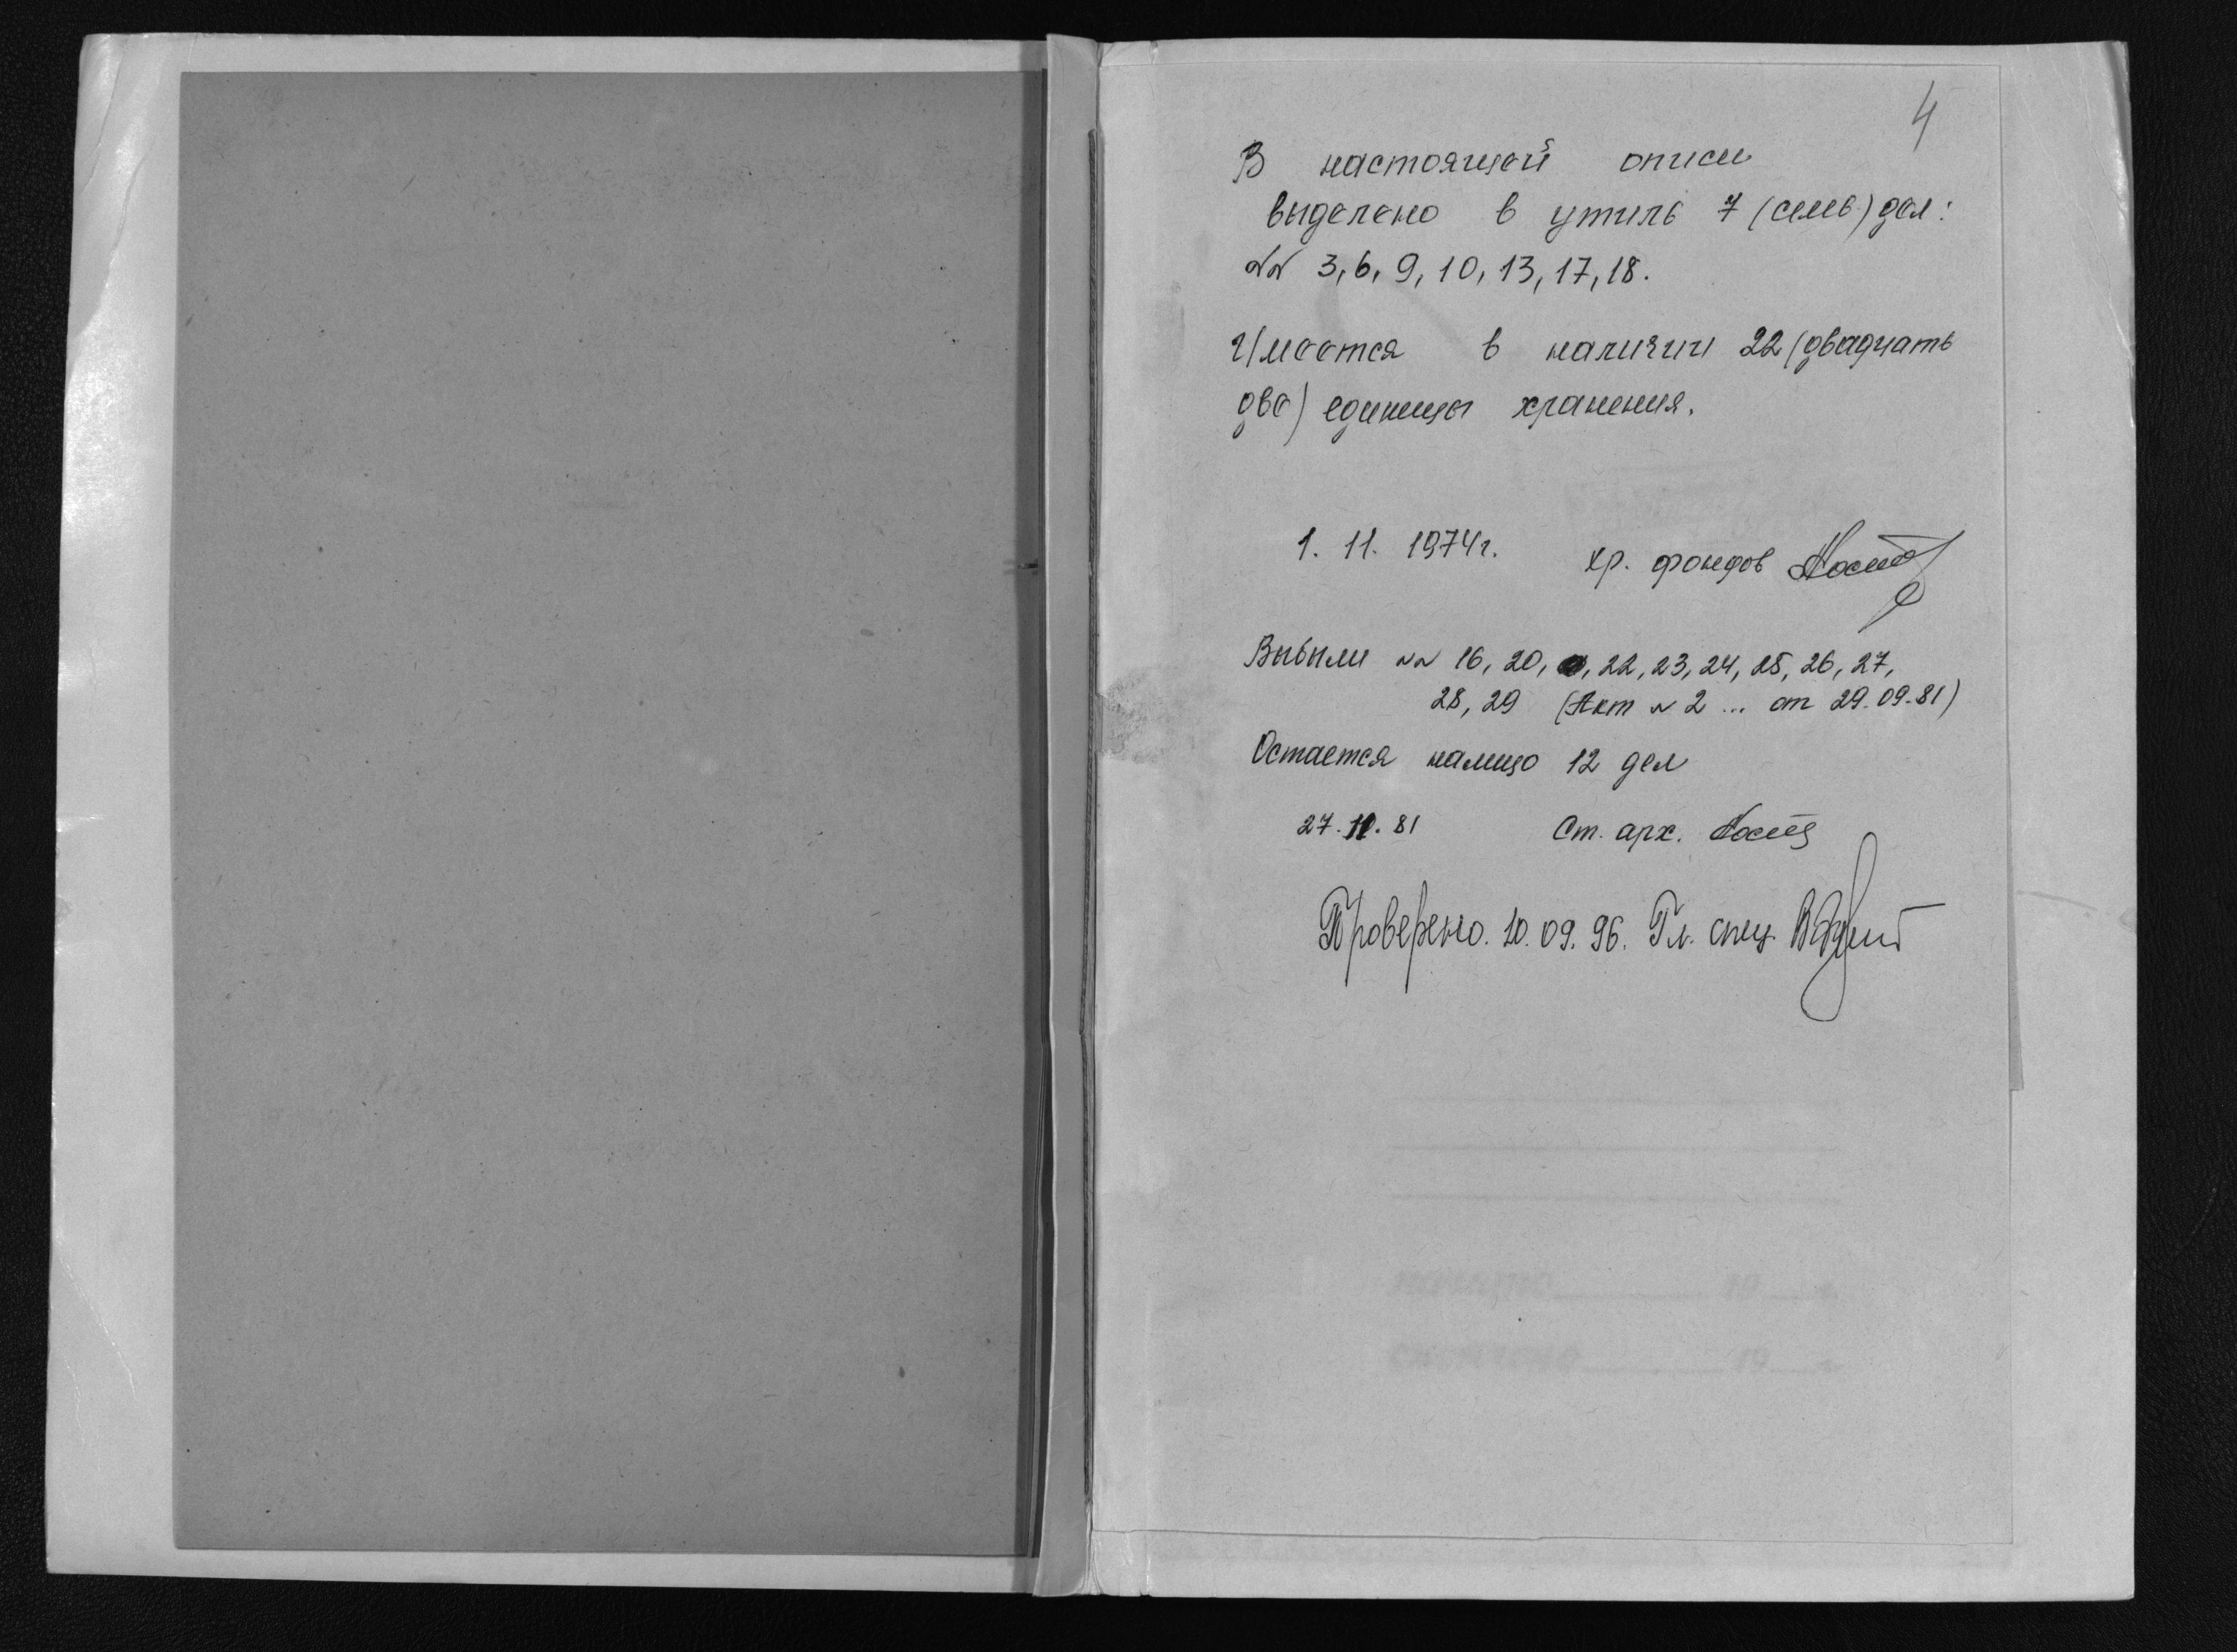 4
В настоящей описи
выделено в утиль 7 (семь) дел:
№№ 3, 6, 9, 10, 13, 17, 18.
Имеется в наличии 22 (двадцать
два) единицы хранения.
1. 11. 1974 г. хр. фондов
Выбыли №№ 16, 20, 22, 23, 24, 25, 26, 27,
28, 29 (Акт № 2 ... от 29.09.81)
Остается налицо 12 дел
27. 11. 81 Ст. арх.
Проверено. 10. 09. 96. Гл. спец.